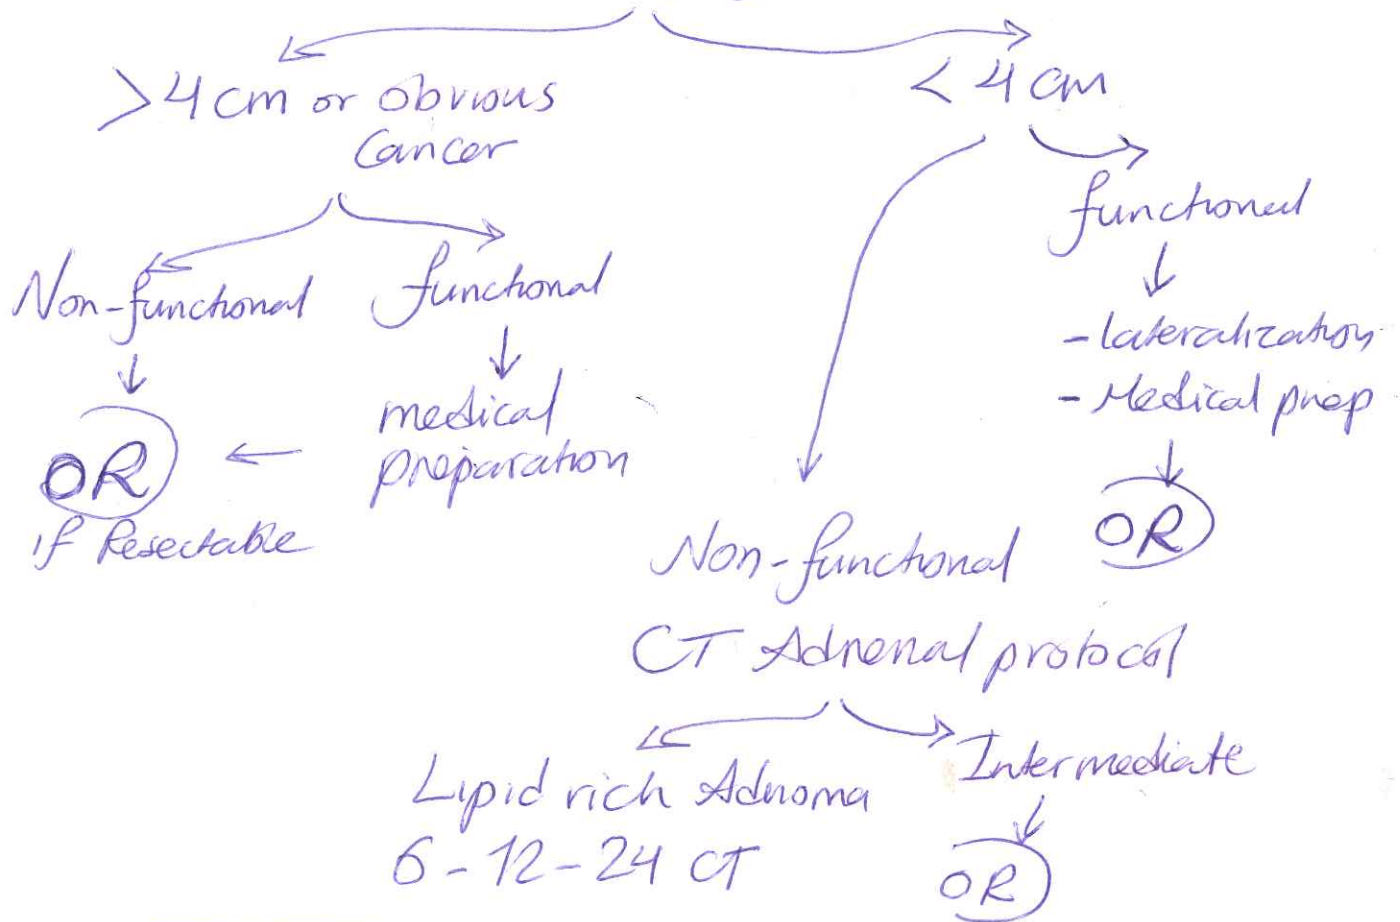 >4 cm or obvious
Cancer
< 4 cm
Non-functional
functional
functional
medical
preparation
OR
if Resectable
- lateralization
- Medical prep
OR
Non-functional
CT Adrenal protocol
Lipid rich Adnoma
6-12-24 CT
Intermediate
OR